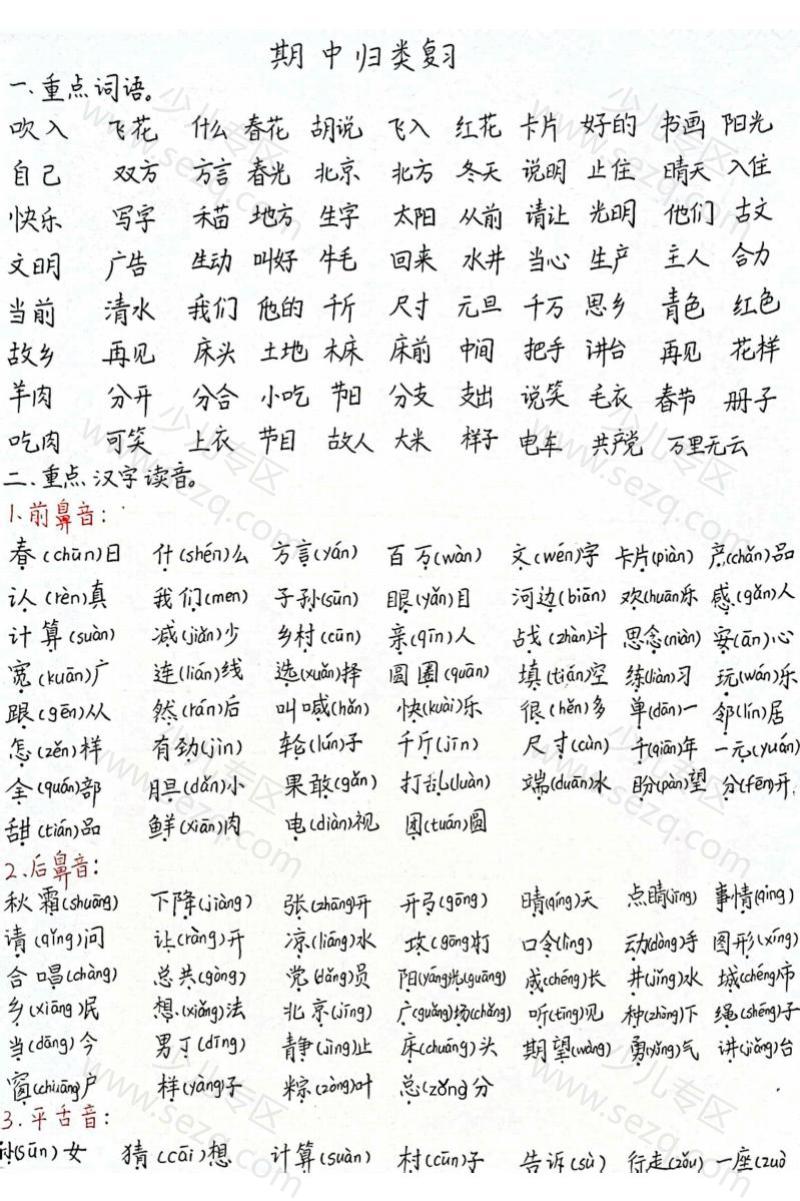 期中归类复习
一.重点词语。
吹入 飞花 什么 春花 胡说 飞入 红花 卡片 好的 书画 阳光
自己 双方 方言 春光 北京 北方 冬天 说明 止住 晴天 入住
快乐 写字 禾苗 地方 生字 太阳 从前 请让 光明 他们 古文
文明 广告 生动 叫好 牛毛 回来 水井 当心 生产 主人 合力
当前 清水 我们 他的 千斤 尺寸 元旦 千万 思乡 青色 红色
故乡 再见 床头 土地 木床 床前 中间 把手 讲台 再见 花样
羊肉 分开 分合 小吃 节日 分支 支出 说笑 毛衣 春节 册子
吃肉 可笑 上衣 节目 故人 大米 样子 电车 共产党 万里无云
二.重点汉字读音。
1.前鼻音:
春(chūn)日 什(shén)么 方言(yán) 百万(wàn) 文(wén)字 卡片(piàn) 产(chǎn)品
认(rèn)真 我们(men) 子孙(sūn) 眼(yǎn)目 河边(biān) 欢(huān)乐 感(gǎn)人
计算(suàn) 减(jiǎn)少 乡村(cūn) 亲(qīn)人 战(zhàn)斗 思念(niàn) 安(ān)心
宽(kuān)广 连(lián)线 选(xuǎn)择 圆圈(quān) 填(tián)空 练(liàn)习 玩(wán)乐
跟(gēn)从 然(rán)后 叫喊(hǎn) 快(kuài)乐 很(hěn)多 单(dān)一 邻(lín)居
怎(zěn)样 有劲(jìn) 轮(lún)子 千斤(jīn) 尺寸(cùn) 千(qiān)年 一元(yuán)
全(quán)部 胆(dǎn)小 果敢(gǎn) 打乱(luàn) 端(duān)水 盼(pàn)望 分(fēn)开
甜(tián)品 鲜(xiān)肉 电(diàn)视 团(tuán)圆
2.后鼻音:
秋霜(shuāng) 下降(jiàng) 张(zhāng)开 开弓(gōng) 晴(qíng)天 点睛(jīng) 事情(qing)
请(qǐng)问 让(ràng)开 凉(liáng)水 攻(gōng)打 口令(lìng) 动(dòng)手 图形(xíng)
合唱(chàng) 总共(gòng) 党(dǎng)员 阳(yáng)光(guāng) 成(chéng)长 井(jǐng)水 城(chéng)市
乡(xiāng)民 想(xiǎng)法 北京(jīng) 广(guǎng)场(chǎng) 听(tīng)见 种(zhòng)下 绳(shéng)子
当(dāng)今 男丁(dīng) 静(jìng)止 床(chuáng)头 期望(wàng) 勇(yǒng)气 讲(jiǎng)台
窗(chuāng)户 样(yàng)子 粽(zòng)叶 总(zǒng)分
3.平舌音:
孙(sūn)女 猜(cāi)想 计算(suàn) 村(cūn)子 告诉(sù) 行走(zǒu) 一座(zuò